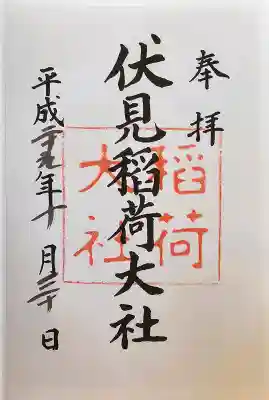 奉拝
伏見稲荷大社
稲荷
大社
平成二十九年十月三十日